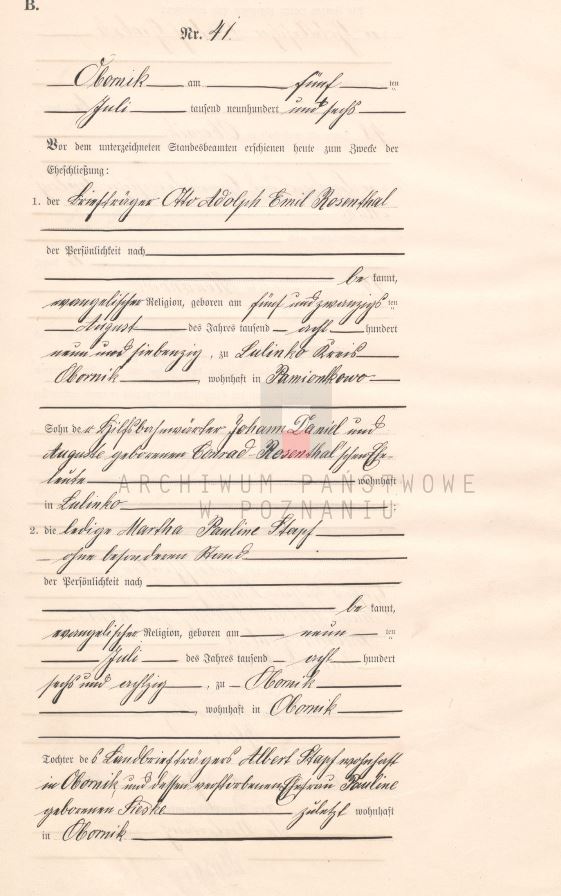 B.
Nr. 41.
Obornik am fünf ten
Juli tausend neunhundert und sechs
Vor dem unterzeichneten Standesbeamten erschienen heute zum Zwecke der
Eheschließung:
1. der Briefträger Otto Adolph Emil Rosenthal
der Persönlichkeit nach
be kannt,
evangelischer Religion, geboren am fünf und zwanzigs ten
August des Jahres tausend acht hundert
neun und siebenzig, zu Lulinko Kreis
Obornik, wohnhaft in Pamionkowo
Sohn de r Hilfsbahnwärter Johann Daniel und
Auguste geborenen Conrad Rosenthal'schen Ehe-
leute wohnhaft
ARCHIWUM PAŃSTWOWE
in Lulinko
W POZNANIU
2. die ledige Martha Pauline Stapf
ohne besonderen Stand
der Persönlichkeit nach
be kannt,
evangelischer Religion, geboren am neun ten
Juli des Jahres tausend acht hundert
sechs und achtzig, zu Obornik
, wohnhaft in Obornik
Tochter de s Landbriefträgers Albert Stapf wohnhaft
in Obornik und dessen verstorbenen Ehefrau Pauline
geborenen Sieske zuletzt wohnhaft
in Obornik